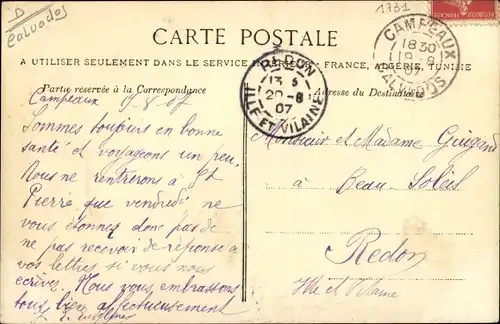 D
Calvados
1731
CARTE POSTALE
A UTILISER SEULEMENT DANS LE SERVICE FRANCE, ALGERIE, TUNISIE
CAMPEAUX
18 30
19 - 8
07
CALVADOS
REDON
13 5
20 - 8
07
ILLE ET VILAINE
Partie réservée à la Correspondance
Adresse du Destinataire
Campeaux 19/8/07
Sommes toujours en bonne
santé et voyageons un peu.
Nous ne rentrerons à St
Pierre que vendredi ne
vous étonnez donc pas de
ne pas recevoir de réponse à
vos lettres si vous nous
écrivez. Nous vous embrassons
tous bien affectueusement
Monsieur et Madame
à
Beau Soleil
Redon
Ille et Vilaine